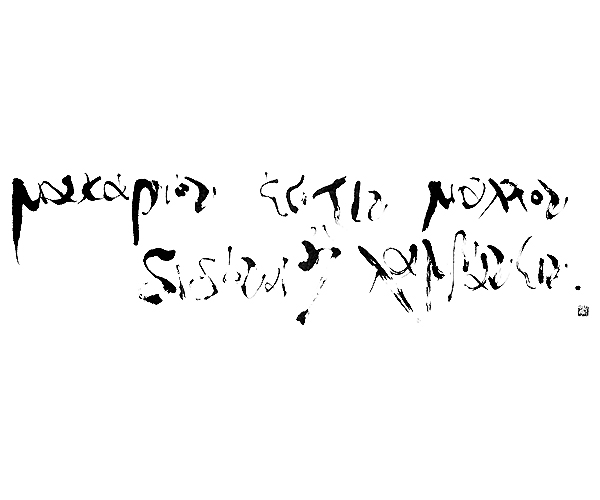 μακάριόν ἐστιν μᾶλλον
διδόναι ἢ λαμβάνειν.